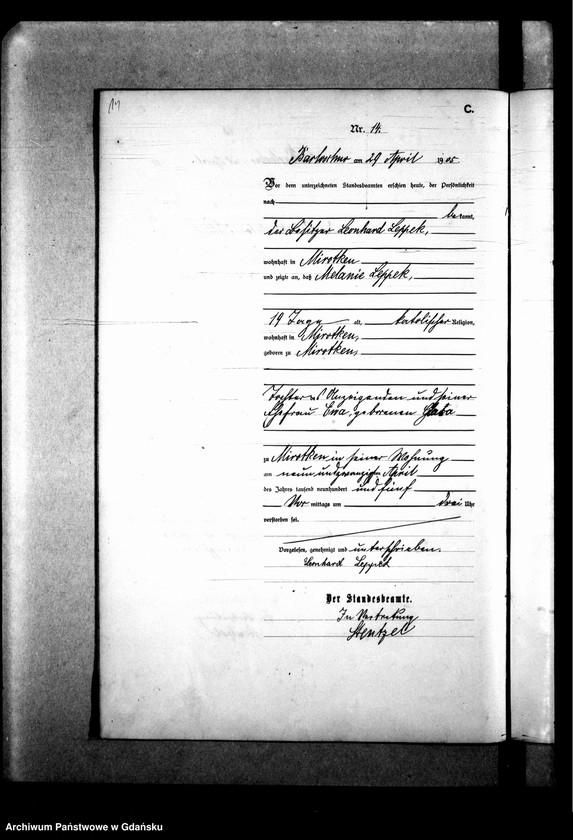 14
C.
Nr. 14.
am 29 April 1905
Vor dem unterzeichneten Standesbeamten erschien heute, der Persönlichkeit
nach
bekannt,
der Besitzer Leonhard Leppek,
wohnhaft in Mirotken
und zeigte an, daß Melanie Leppek,
19 Jahre alt, katolischer Religion,
wohnhaft in Mirotken,
geboren zu Mirotken,
Tochter des Anzeigenden und seiner
Ehefrau Eva, geborenen
zu Mirotken, in seiner Wohnung
am neunundzwanzigsten April
des Jahres tausend neunhundert und fünf
Vor mittags um drei Uhr
verstorben sei.
Vorgelesen, genehmigt und unterschrieben.
Leonhard Leppek
Der Standesbeamte.
In Vertretung
Stentzel
Archiwum Państwowe w Gdańsku